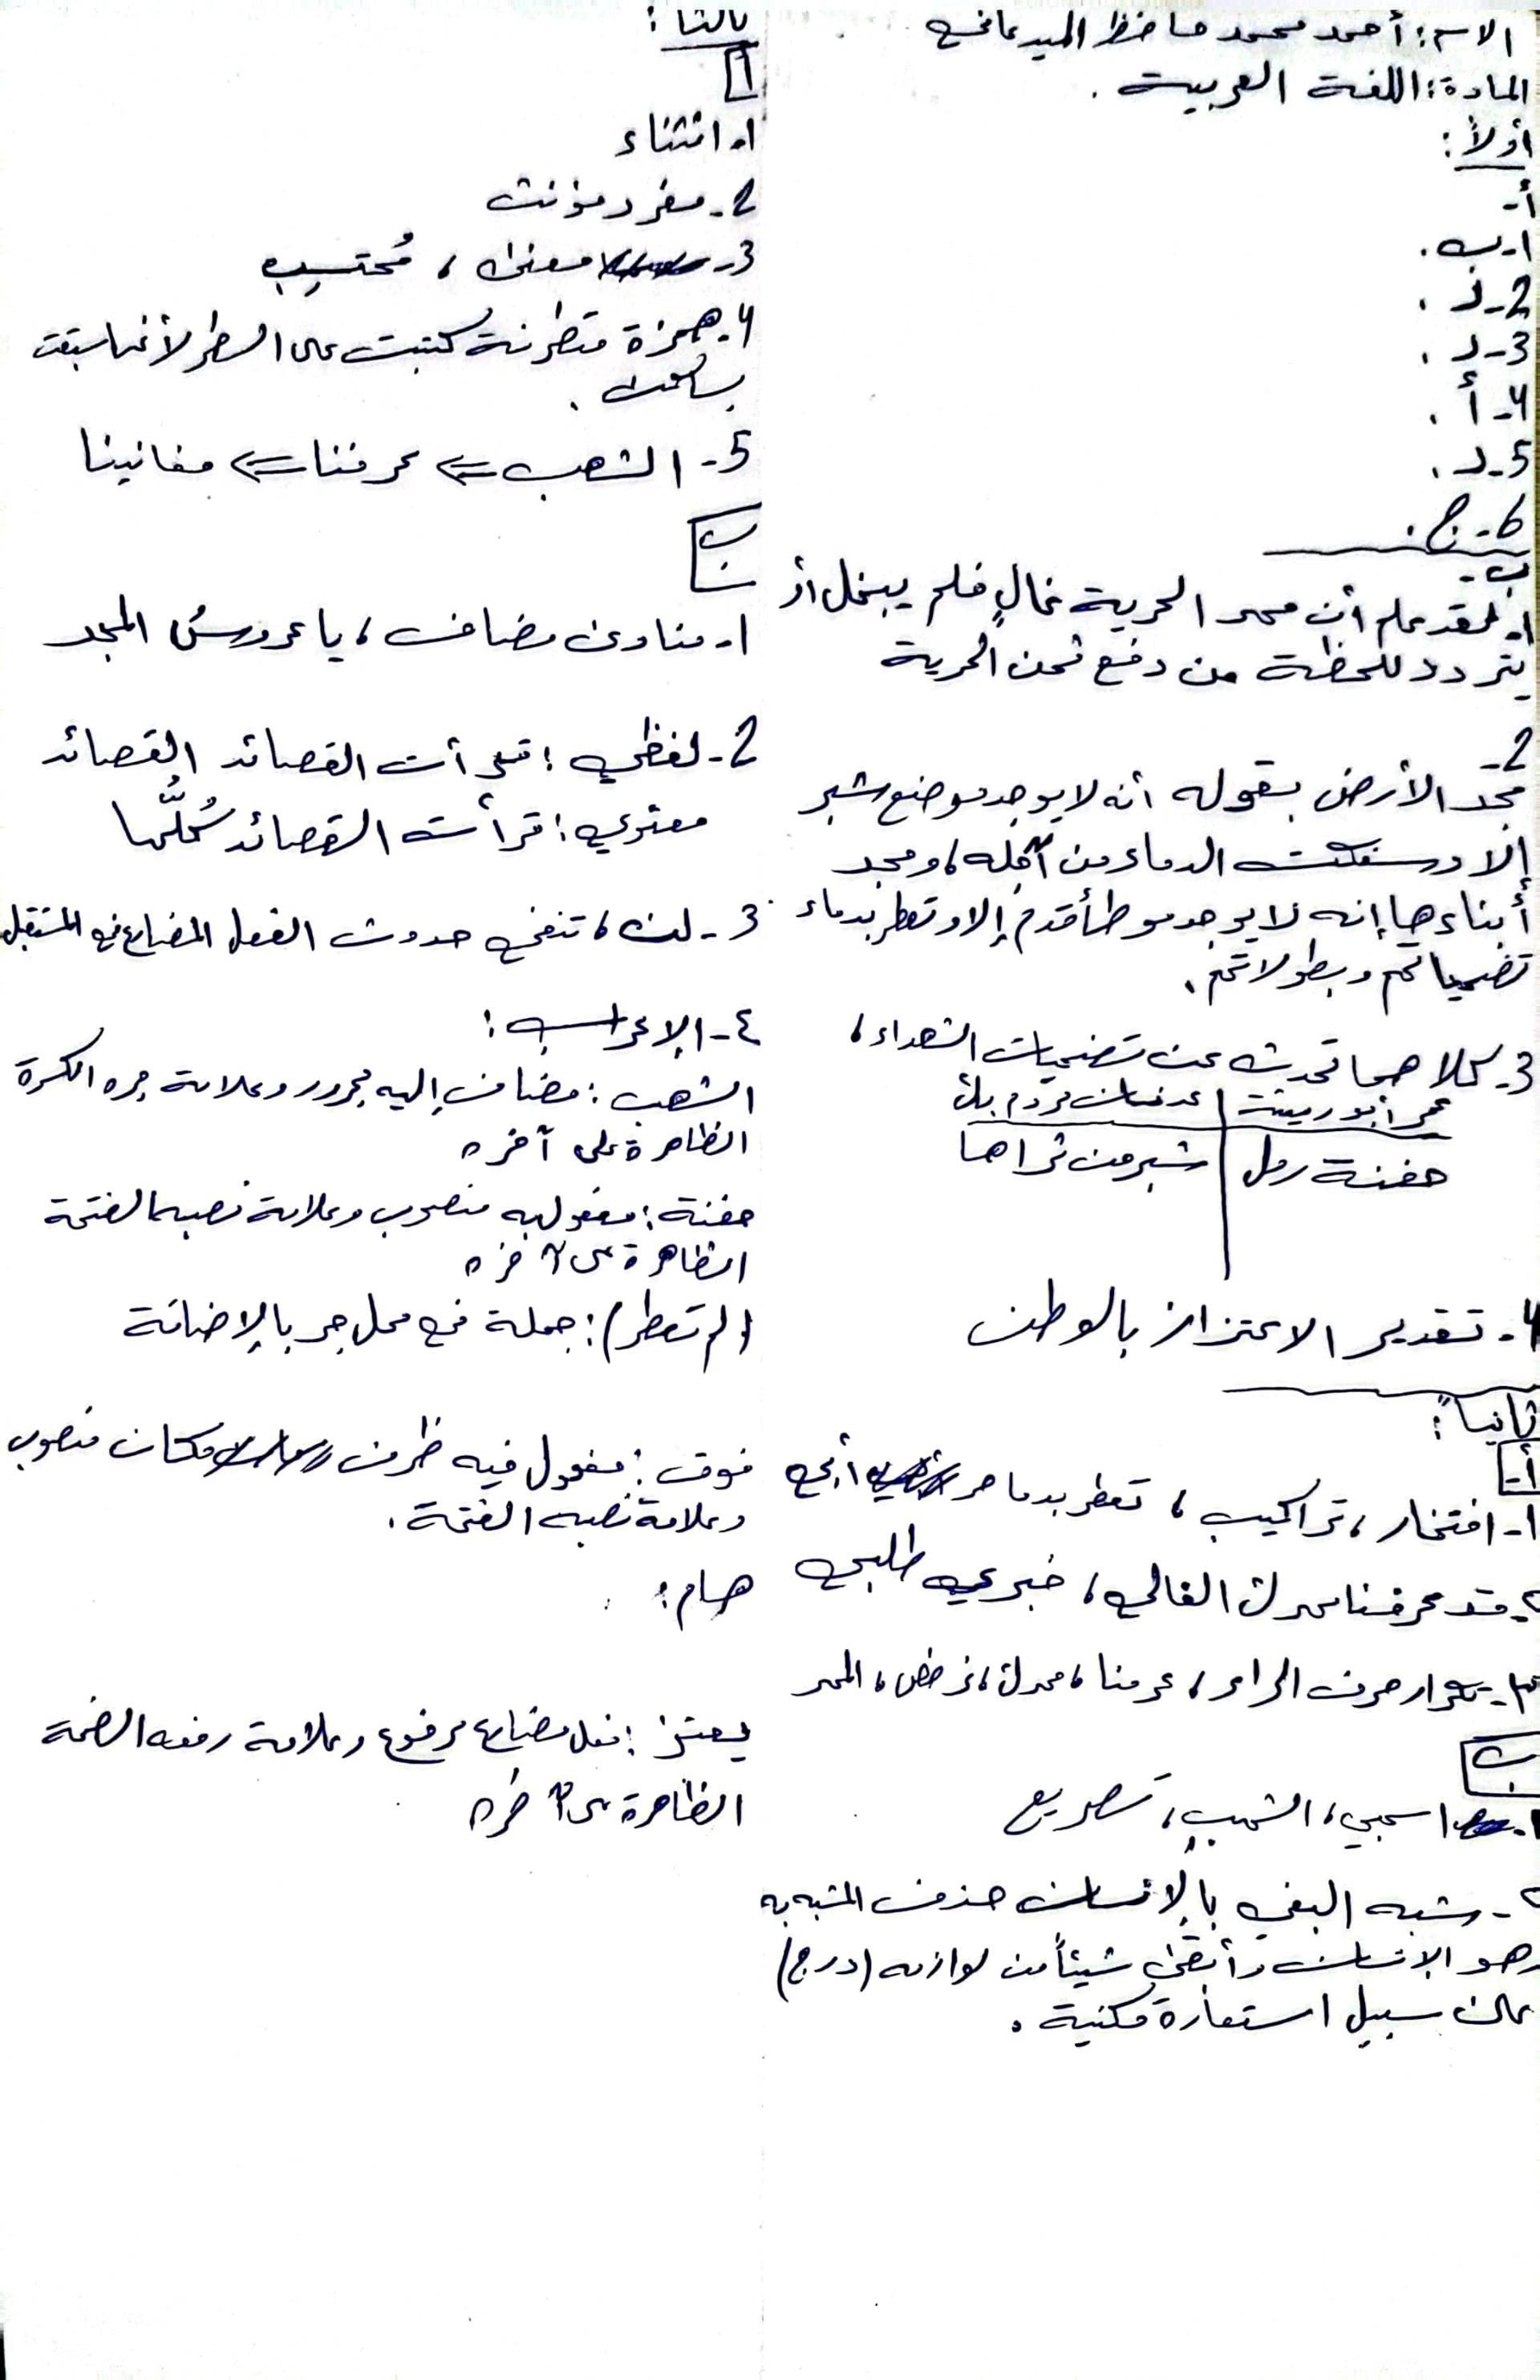 الاسم: أحمد محمد حافظ الميدعاني
المادة: اللغة العربية.
أولاً:
أ-
1- ب.
2- د.
3- د.
4- أ.
5- د.
6- ج.
ب-
1- لقد علم أن مهر الحرية غالٍ فلم يبخل أو
يتردد للحظة من دفع ثمن الحرية
2-
مجّد الأرض بقوله أنه لا يوجد موضع شبر
إلا وسفكت الدماء من أجله، ومجد
أبناءها إنه لا يوجد موطأ قدم إلا وتعطر بدماء
تضحياتهم وبطولاتهم.
3- كلاهما تحدث عن تضحيات الشهداء،
عمر أبو ريشة | عدنان مردم بك
حفنة رمل | شبر من ثراها
4- تقدير الاعتزاز بالوطن
ثانياً:
أ-
1- افتخار، تراكيب، تعطر بدما حر أبي
2- قد عرفنا مهرك الغالي، خبري طلبي
3- تكرار حرف الراء، عرفنا، مهرك، نرخص، المهر
ب
1- اسحبي، الشهبِ، تصريع
2- شبه البغي بالإنسان حذف المشبه به
وهو الإنسان وأبقى شيئاً من لوازمه (درج)
على سبيل استعارة مكنية.
ثالثا:
أ
1- انتشاء
2- مفرد مؤنث
3- معنى، مُحتسِب
4- همزة متطرفة كتبت على السطر لأنها سبقت
بساكن.
5- الشهب ⇐ عرفنا ⇐ مغانينا
ب
1- منادى مضاف، يا عروسُ المجد
2- لفظي: قرأت القصائد القصائد
معنوي: قرأت القصائد كُلَّها
3- لن، تنفي حدوث الفعل المضارع في المستقبل
٤- الإعراب:
الشهب: مضاف إليه مجرور وعلامة جره الكسرة
الظاهرة على آخره
حفنة: مفعول به منصوب وعلامة نصبه الفتحة
الظاهرة على آخره
(لم تعطر): جملة في محل جر بالإضافة
فوق: مفعول فيه ظرف مكان منصوب
وعلامة نصبه الفتحة.
هام:
يعتز: فعل مضارع مرفوع وعلامة رفعه الضمة
الظاهرة على آخره